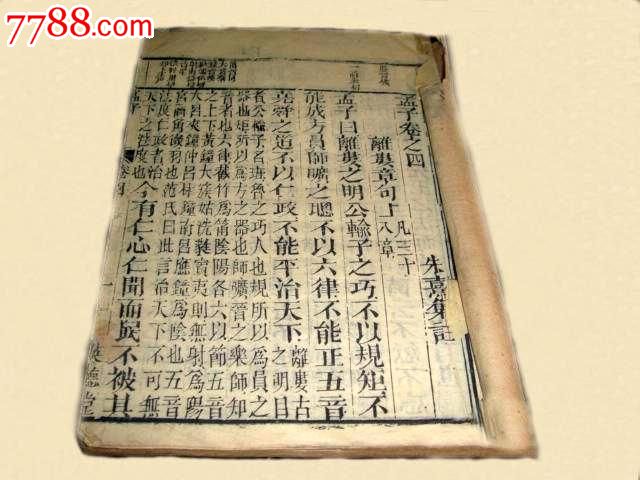 7788.com
孟子卷之四
朱熹集註
離婁章句上 凡二十
八章
孟子曰離婁之明公輸子之巧不以規矩不
能成方員師曠之聰不以六律不能正五音
堯舜之道不以仁政不能平治天下 離婁古
之明目
者公輸子名班魯之巧人也規所以爲員之
器也矩所以爲方之器也師曠晉之樂師知
音者也六律截竹爲筩陰陽各六以節五音
之上下黃鐘大蔟姑洗蕤賓夷則無射爲陽
大呂夾鐘仲呂林鐘南呂應鐘爲陰也五音
宮商角徵羽也范氏曰此言治天下不可無
法度仁政者治
天下之法度也
今有仁心仁聞而民不被其
孟子 卷四